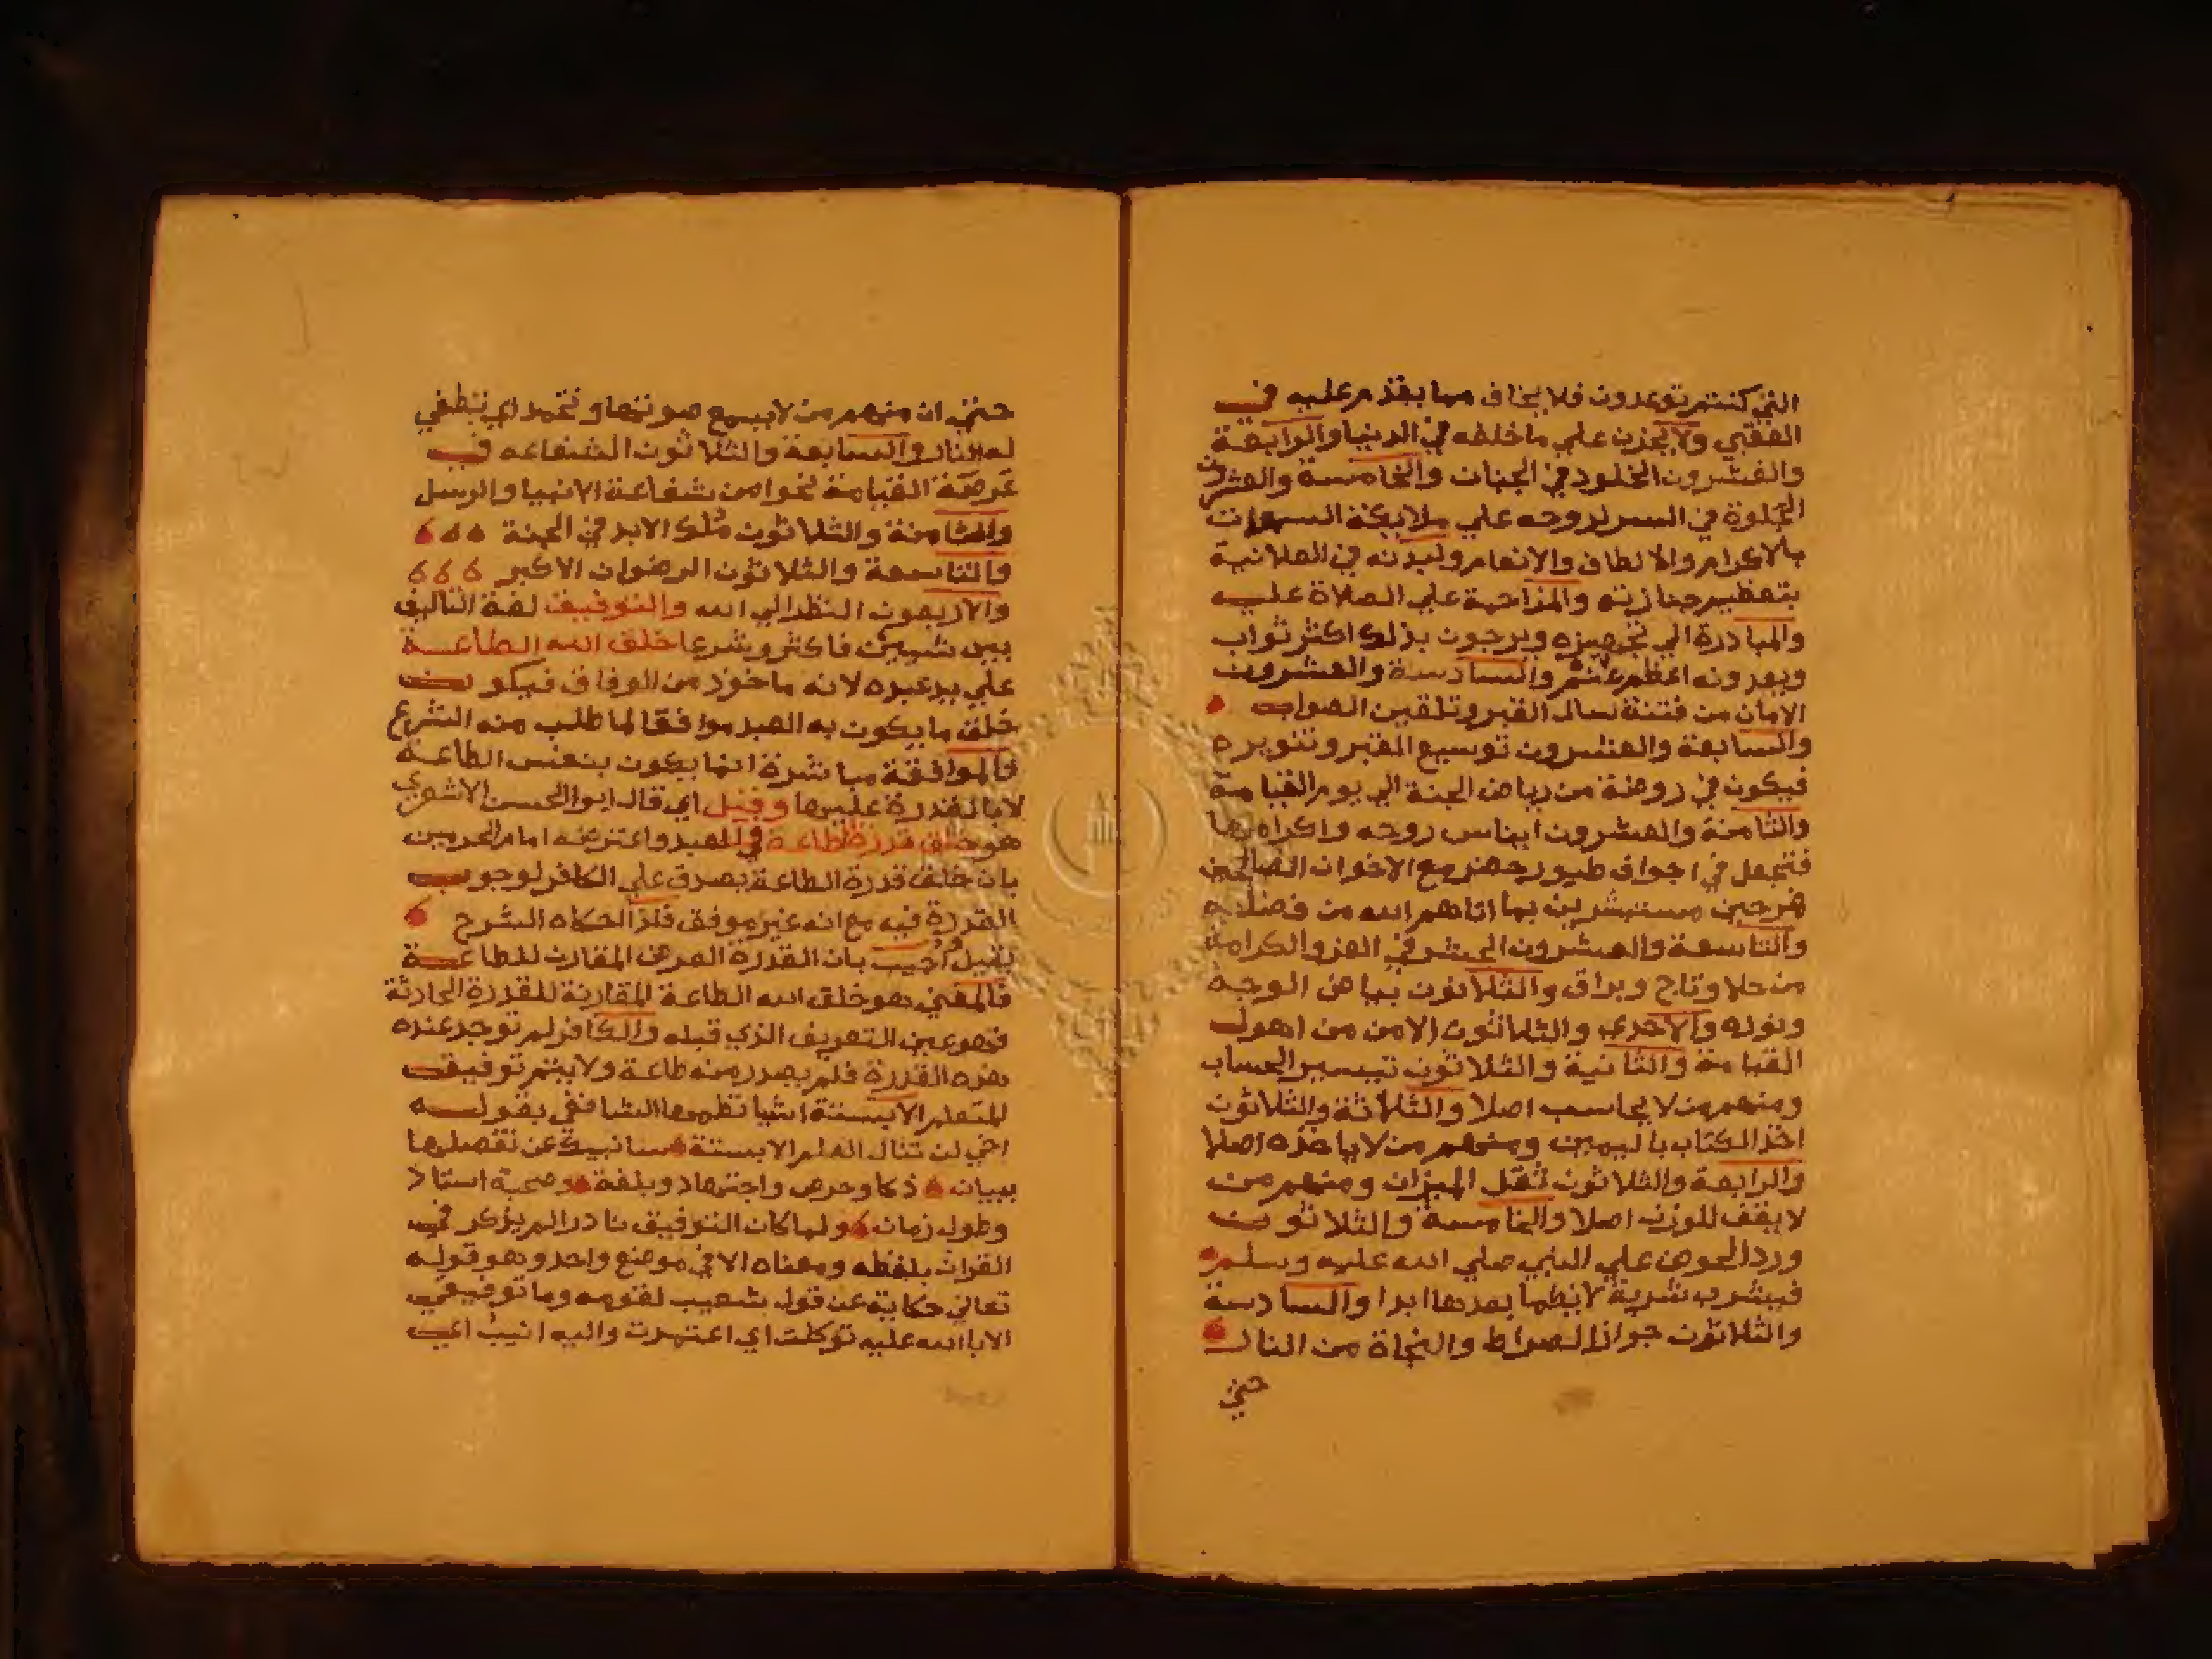 التي كنتم توعدون فلا يخاف مما يقدم عليه في
العقبي ولا يحزن علي ما خلفه في الدنيا والرابعة
والعشرون الخلود في الجنات والخامسة والعشرون
الجلوة في السر لروحه علي ملايكة السموات
بالاكرام والالطاف والانعام ولبدنه في العلانية
بتعظيم جنازته والمزاحمة علي الصلاة عليه
والمبادرة الي تجهيزه ويرجون بذلك اكثر ثواب
ويعدونه اعظم غنم والسادسة والعشرون
الامان من فتنة سال القبر وتلقين الصواب
والسابعة والعشرون توسيع القبر وتنويره
فيكون في روضة من رياض الجنة الي يوم القيامة
والثامنة والعشرون ايناس روحه واكرامها
فتجعل في اجواف طيور خضر مع الاخوان الصالحين
فرحين مستبشرين بما اتاهم الله من فضله
والتاسعة والعشرون الحشر في العز والكرامة
من حلا وتاج وبراق والثلاثون بياض الوجه
ونوره والاحدي والثلاثون الامن من اهول
القيامة والثانية والثلاثون تيسير الحساب
ومنهم من لا يحاسب اصلا والثلاثة والثلاثون
اخذ الكتاب باليمين ومنهم من لا ياخذه اصلا
والرابعة والثلاثون ثقل الميزان ومنهم من
لا يقف للوزن اصلا والخامسة والثلاثون
ورد الحوض علي النبي صلي الله عليه وسلم
فيشرب شربة لا يظما بعدها ابدا والسادسة
والثلاثون جواز الصراط والنجاة من النار
حتي
حتي ان منهم من لا يسمع صوتها وتخمد اي تنطفي
له النار والسابعة والثلاثون الشفاعه في
عرصة القيامة نحوا من شفاعة الانبيا والرسل
والثامنة والثلاثون ملك الابد في الجنة
والتاسعة والثلاثون الرضوان الاكبر
والاربعون النظر الي الله والتوفيق لغة التاليف
بين شيين فاكثر وشرعا خلق الله الطاعة
علي يد عبده لانه ماخوذ من الوفاق فيكون
خلق ما يكون به العبد موافقا لما طلب منه الشرع
فالموافقة مباشرة انما يكون بنفس الطاعة
لا بالقدرة عليها وقيل اي قال ابو الحسن الاشعري
هو خلق قدرة الطاعة في العبد واعترضه امام الحرمين
بان خلق قدرة الطاعة يصدق علي الكافر لوجود
القدرة فيه مع انه غير موفق فلذا حكاه الشرح
بقيل واجيب بان القدرة العرض المقارن للطاعة
فالمعني هو خلق الله الطاعة المقارنة للقدرة الحادثة
فهو عين التعريف الذي قبله والكافر لم توجد عنده
هذه القدرة فلم يصدر منه طاعة ولا يتم توفيق
للمتعلم الا بستة اشيا نظمها الشافعي بقوله
اخي لن تنال العلم الا بستة سانبيك عن تفصيلها
ببيان ذكا وحرص واجتهاد وبلغة وصحبة استاذ
وطول زمان ولما كان التوفيق نادرا لم يذكر في
القران بلفظه ومعناه الا في موضع واحد وهو قوله
تعالي حكاية عن قول شعيب لقومه وما توفيقي
الا بالله عليه توكلت اي اعتمدت واليه انيب اي